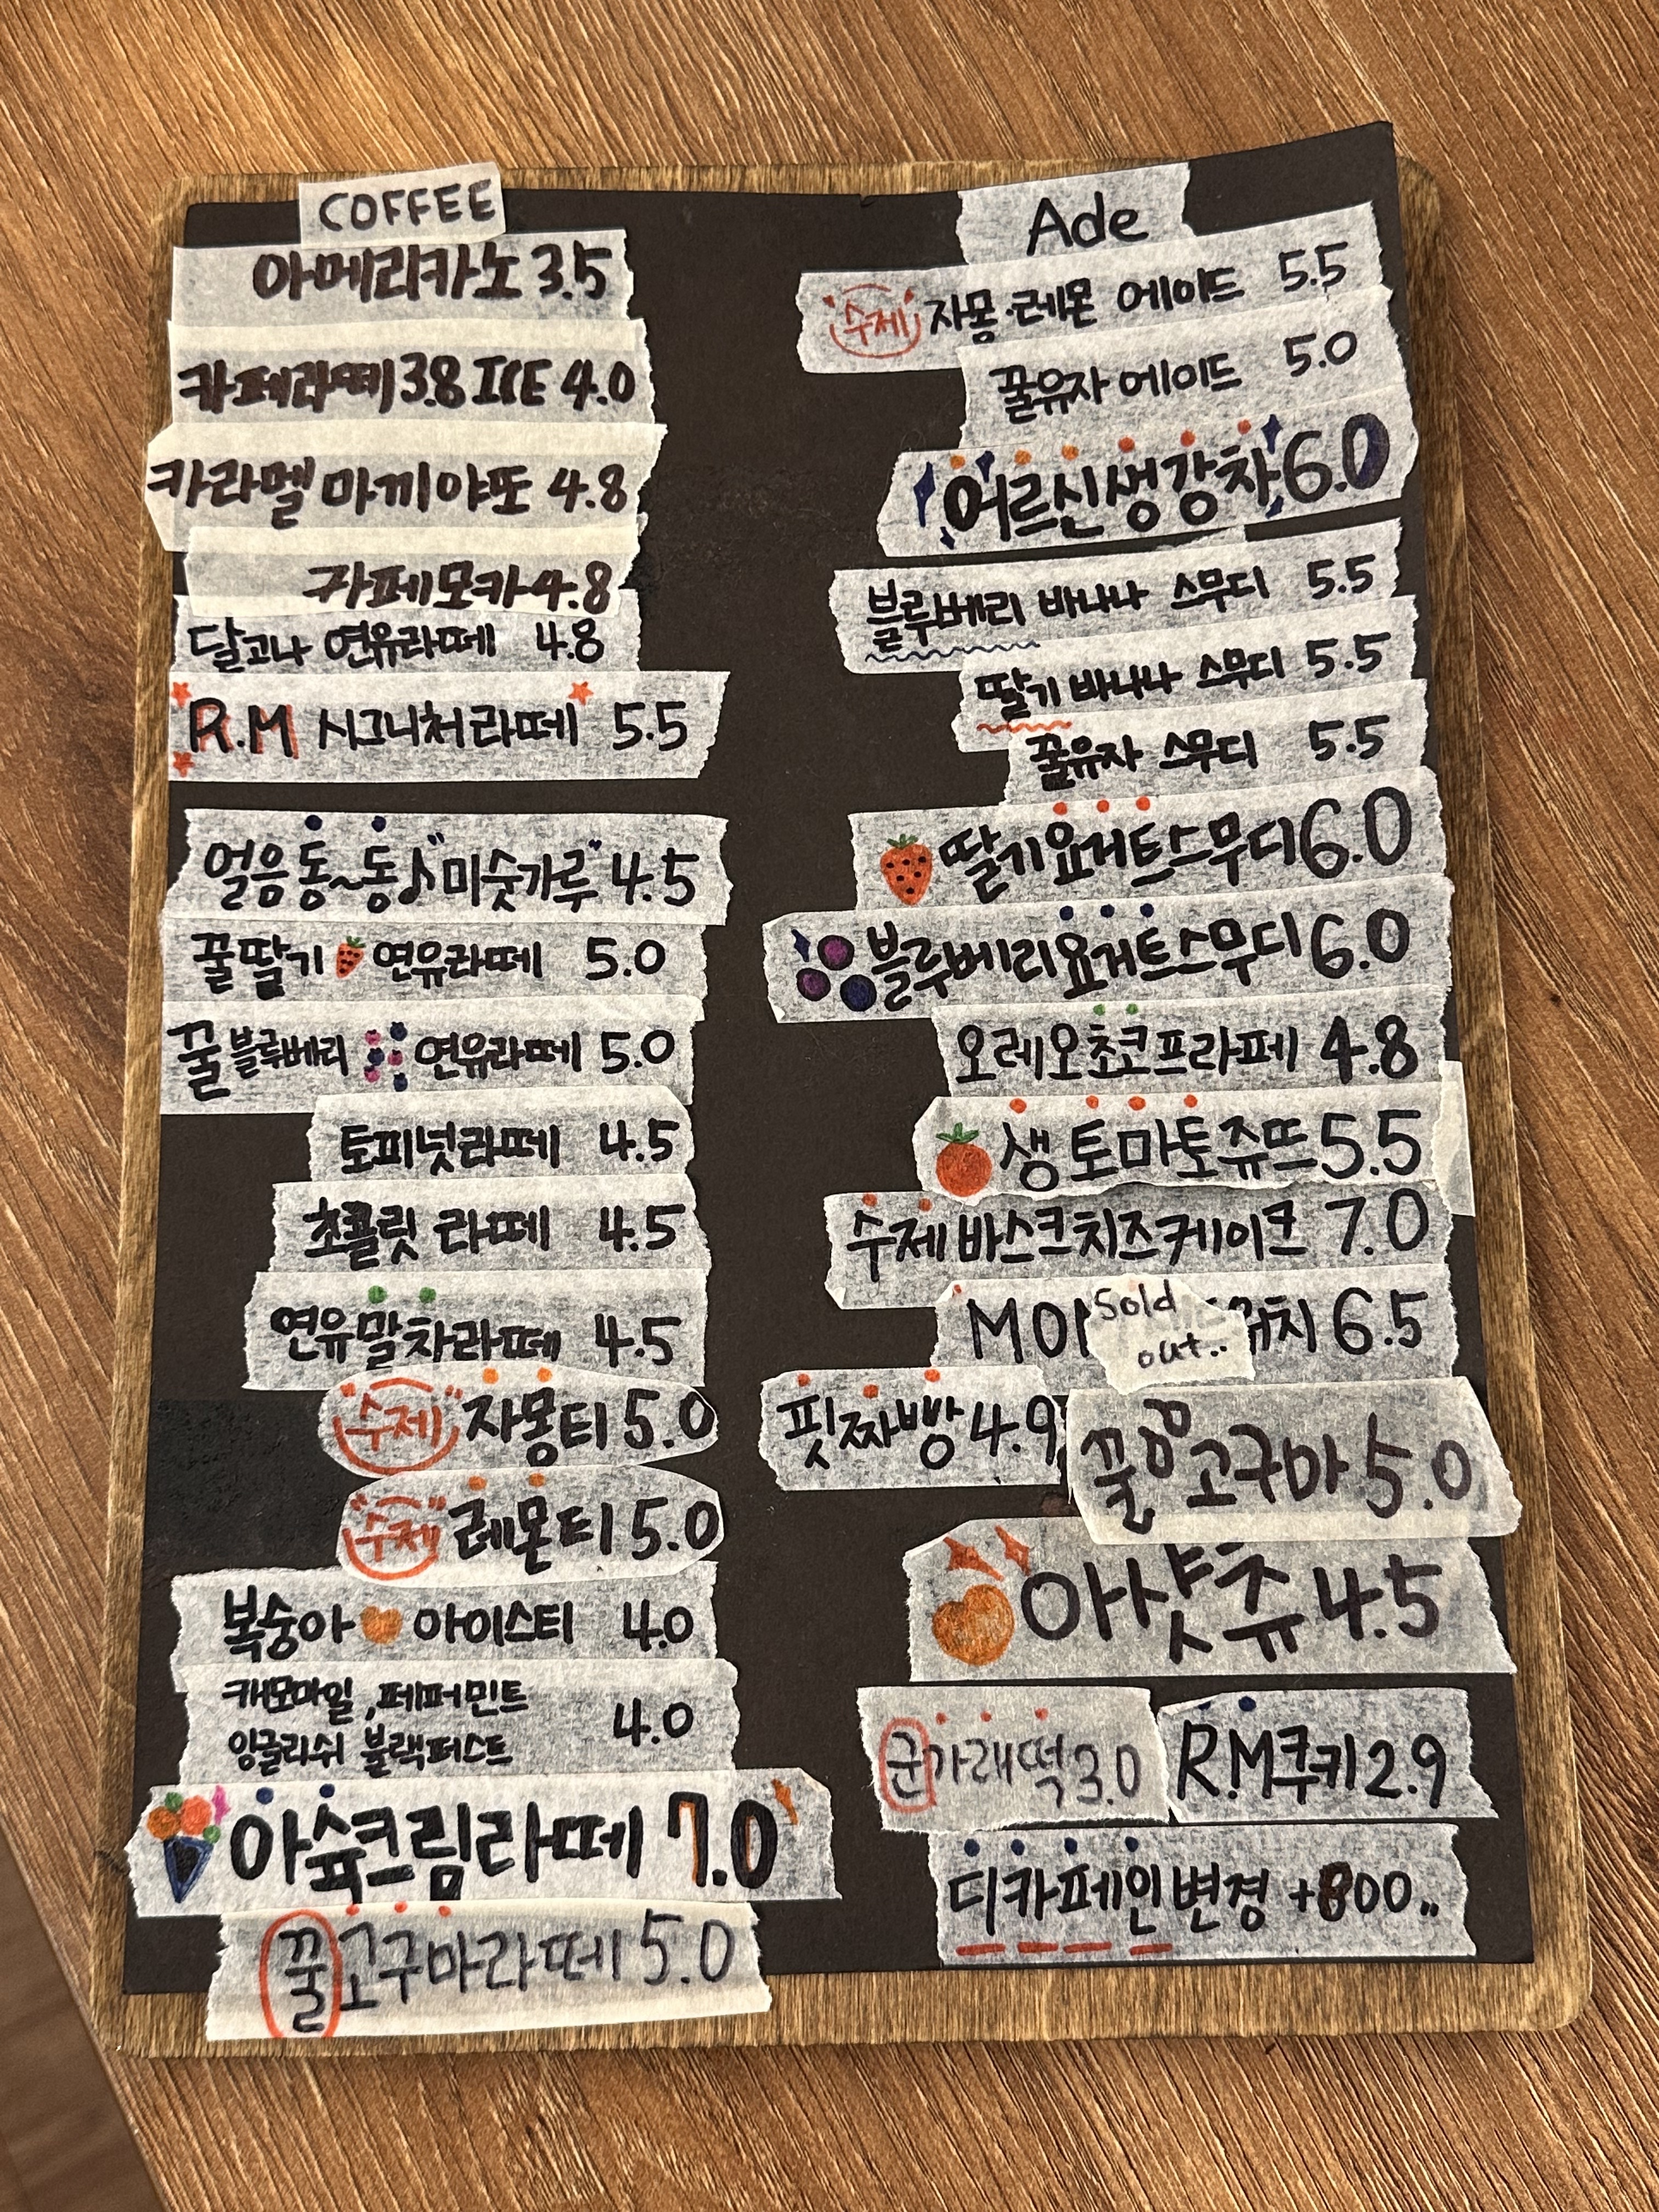 COFFEE
아메리카노 3.5
카페라떼 3.8 ICE 4.0
카라멜 마끼야또 4.8
카페모카 4.8
달고나 연유라떼 4.8
R.M 시그니처라떼 5.5
얼음동~동♪"미숫가루" 4.5
꿀딸기 연유라떼 5.0
꿀블루베리 연유라떼 5.0
토피넛라떼 4.5
초콜릿 라떼 4.5
연유말차라떼 4.5
"수제" 자몽티 5.0
"수제" 레몬티 5.0
복숭아 아이스티 4.0
캐모마일, 페퍼민트
잉글리쉬 블랙퍼스트 4.0
아슈크림라떼 7.0
꿀고구마라떼 5.0
Ade
수제 자몽·레몬 에이드 5.5
꿀유자 에이드 5.0
어르신생강차 6.0
블루베리 바나나 스무디 5.5
딸기 바나나 스무디 5.5
꿀유자 스무디 5.5
딸기요거트스무디 6.0
블루베리요거트스무디 6.0
오레오초코프라페 4.8
생토마토쥬뜨 5.5
수제바스크치즈케이크 7.0
Sold
out..
6.5
핏짜빵 4.9
꿀고구마 5.0
아샷츄 4.5
군가래떡 3.0
R.M쿠키 2.9
디카페인변경 +800..